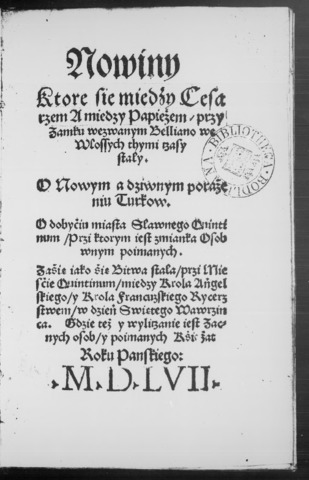 Nowiny
Ktore sie miedzy Cesa
rzem A miedzy Papieżem / przy
Zamku wezwanym Belliano we
Włoszych thymi czasy
stały.
O Nowym a dziwnym poraże
niu Turkow.
O dobyciu miasta Sławnego Quinti
num / Przi ktorym iest zmianka Osob
wnym poimanych.
Zasie iako sie Bitwa stala / przi Mie
scie Quintinum / miedzy Krola Angel
skiego / y Krola Francuzskiego Rycerz
stwem / w dzień Swietego Wawrzin
ca. Gdzie też y wyliczanie iest Zac-
nych osob / y poimanych Ksiażat
Roku Panskiego:
M.D.LVII
BIBLIOTHECA BODLEIANA